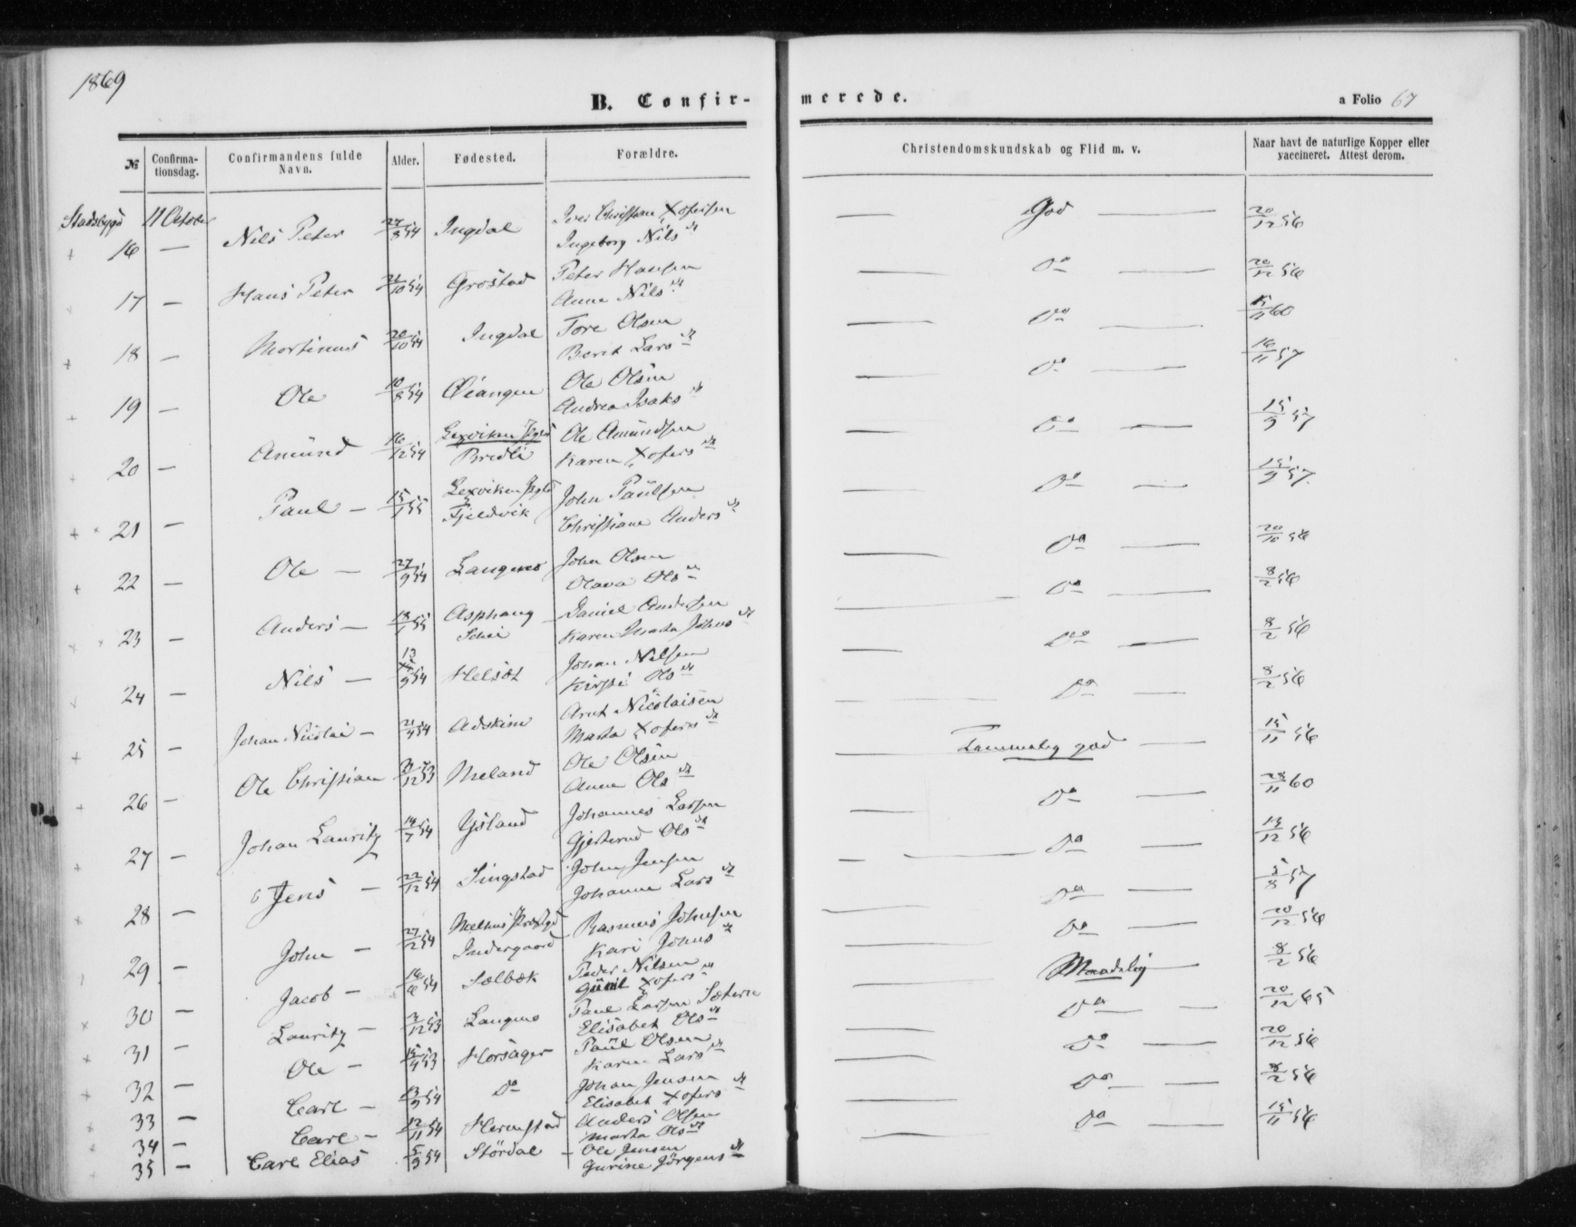 1869
B. Confir-
merede.
a Folio 67
№
Confirma-
tionsdag.
Confirmandens fulde
Navn.
Alder.
Fødested.
Forældre.
Christendomskundskab og Flid m. v.
Naar havt de naturlige Kopper eller
vaccineret. Attest derom.
Stadsbygd 11 October
16 — Nils Peter 27/8 54 Ingdal Iver Christian Xofersen
Ingeborg Nilsdt — God — 20/12 56
17 — Hans Peter 21/10 54 Grøstad Peter Hansen
Anne Nilsdt — Do — 20/12 56
18 — Mortinus 20/10 54 Ingdal Tore Olsen
Berit Larsdt — Do — 60
19 — Ole 10/8 54 Øiangen Ole Olsen
Andrea Isaksdt — Do — 16/11 57
20 — Amund 16/12 54 Lexviken Prgld
Bredli Ole Amundsen
Karen Xofersdt — Do — 15/9 57
21 — Paul — 15/1 55 Lexviken Prgld
Fjeldvik John Paulsen
Christiane Andersdt — Do — 15/9 57
22 — Ole — 27/9 54 Langnes John Olsen
Olava Olsdt — Do — 20/10 56
23 — Anders — 18/1 55 Asphaug
Schei Daniel Andersen
Karen Marta Johnsdt — Do — 8/2 56
24 — Nils — 13/9 54 Helsøt Johan Nilsen
Kirsti Olsdt — Do — 8/2 56
25 — Johan Nicolai — 21/4 54 Adskin Arnt Nicolaisen
Marta Xofersdt — Do — 8/2 56
26 — Ole Christian 12 53 Meland Ole Olsen
Anne Olsdt — Temmelig god — 15/11 56
27 — Johan Lauritz 14/7 54 Ysland Johannes Larsen
Gjertrud Olsdt — Do — 28/11 60
28 — Jens — 22/12 54 Singstad John Jensen
Johanne Larsdt — Do — 12 56
29 — John — 27/2 54 Melhus Prstgd
Indergaard Rasmus Johnsen
Kari Johnsdt — Do — 5/8 57
30 — Jacob — 16/6 54 Sælbæk Peder Nilsen
Gunil Xofersdt — Do — 20/12 56
31 — Lauritz — 12 53 Langnes Paul Larsen Sæteren
Elisabet Olsdt — Maadelig — 8/2 56
32 — Ole — 15/4 53 Horsager Paul Olsen
Karen Larsdt — Do — 20/12 65
33 — Carl — 9 54 Do Johan Jensen
Elisabet Xofersdt — Do — 20/12 56
34 — Carl — 12/11 54 Hermstad Anders Olsen
Marta Olsdt — Do — 8/2 56
35 — Carl Elias 5/9 54 Størdal — Ole Jensen
Gurine Jørgensdt — Do — 15/11 56